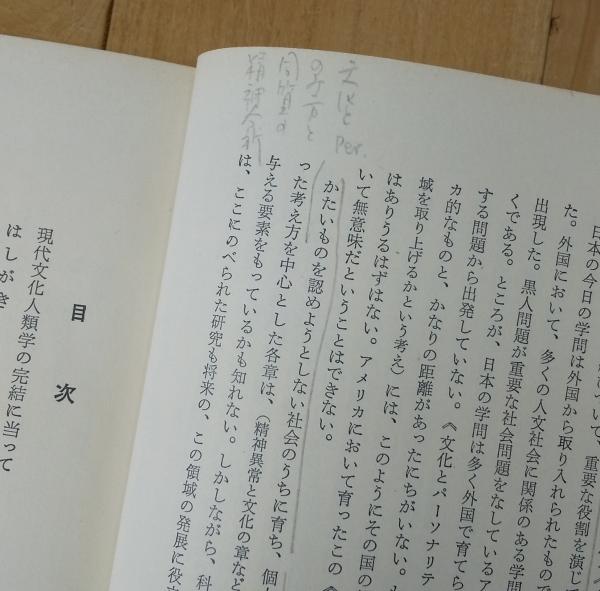 文化と Per.
の考え方と
同質の
精神分析
日本の今日の学問は外国から取り入れられたもので
た。外国において、多くの人文社会に関係のある学問
出現した。黒人問題が重要な社会問題をなしているア
くである。ところが、日本の学問は多く外国で育てら
する問題から出発していない。《文化とパーソナリテ
カ的なものと、かなりの距離があったにちがいない。
域を取り上げるかという考え）には、このようにその国の
はありうるはずはない。アメリカにおいて育ったこの《
いて無意味だということはできない。
かたいものを認めようとしない社会のうちに育ち、個
った考え方を中心とした各章は、（精神異常と文化の章など
与える要素をもっているかも知れない。しかしながら、科
は、ここにのべられた研究も将来の、この領域の発展に役
目次
現代文化人類学の完結に当って
はしがき